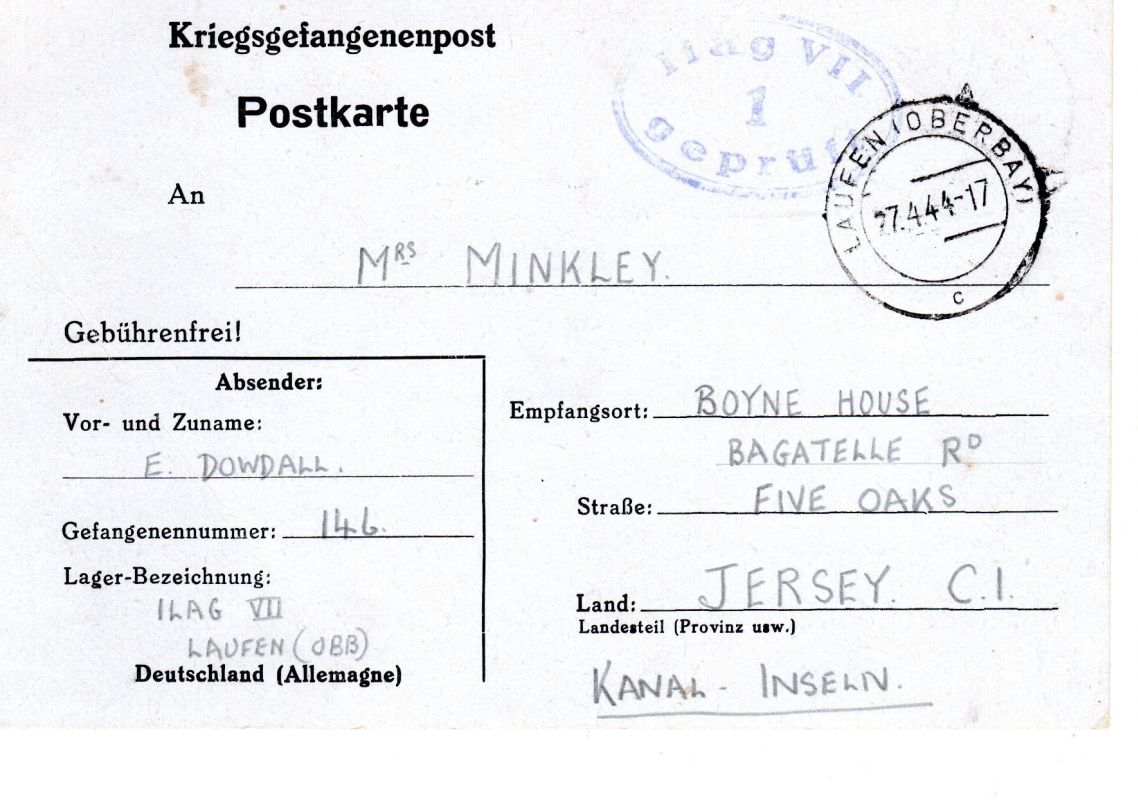 Kriegsgefangenenpost
Ilag VII
1
geprüft
Postkarte
LAUFEN (OBERBAY)
27.4.44-17
c
An
MRS MINKLEY.
Gebührenfrei!
Absender:
Vor- und Zuname:
E. DOWDALL.
Gefangenennummer: 146.
Lager-Bezeichnung:
ILAG VII
LAUFEN (OBB)
Deutschland (Allemagne)
Empfangsort: BOYNE HOUSE
BAGATELLE RD
Straße: FIVE OAKS
Land: JERSEY. C.I.
Landesteil (Provinz usw.)
KANAL - INSELN.